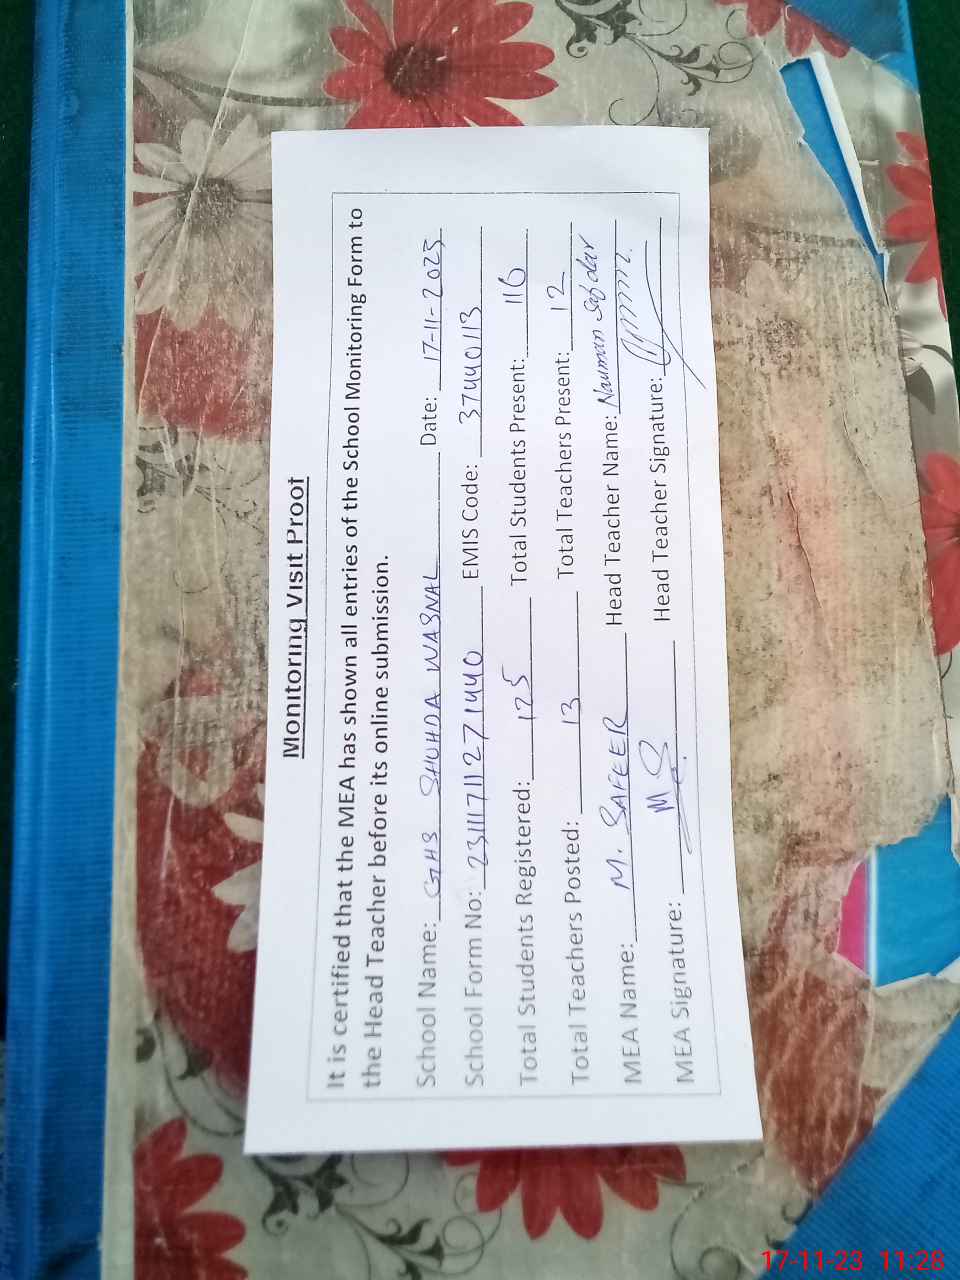 Monitoring Visit Proof
It is certified that the MEA has shown all entries of the School Monitoring Form to
the Head Teacher before its online submission.
School Name: GHS SHUHDA WASNAL Date: 17-11-2023
School Form No: 23111711271440 EMIS Code: 37440113
Total Students Registered: 125 Total Students Present: 116
Total Teachers Posted: 13 Total Teachers Present: 12
MEA Name: M. SAFEER Head Teacher Name: Nauman Safdar
MEA Signature: MS Head Teacher Signature:
17-11-23 11:28